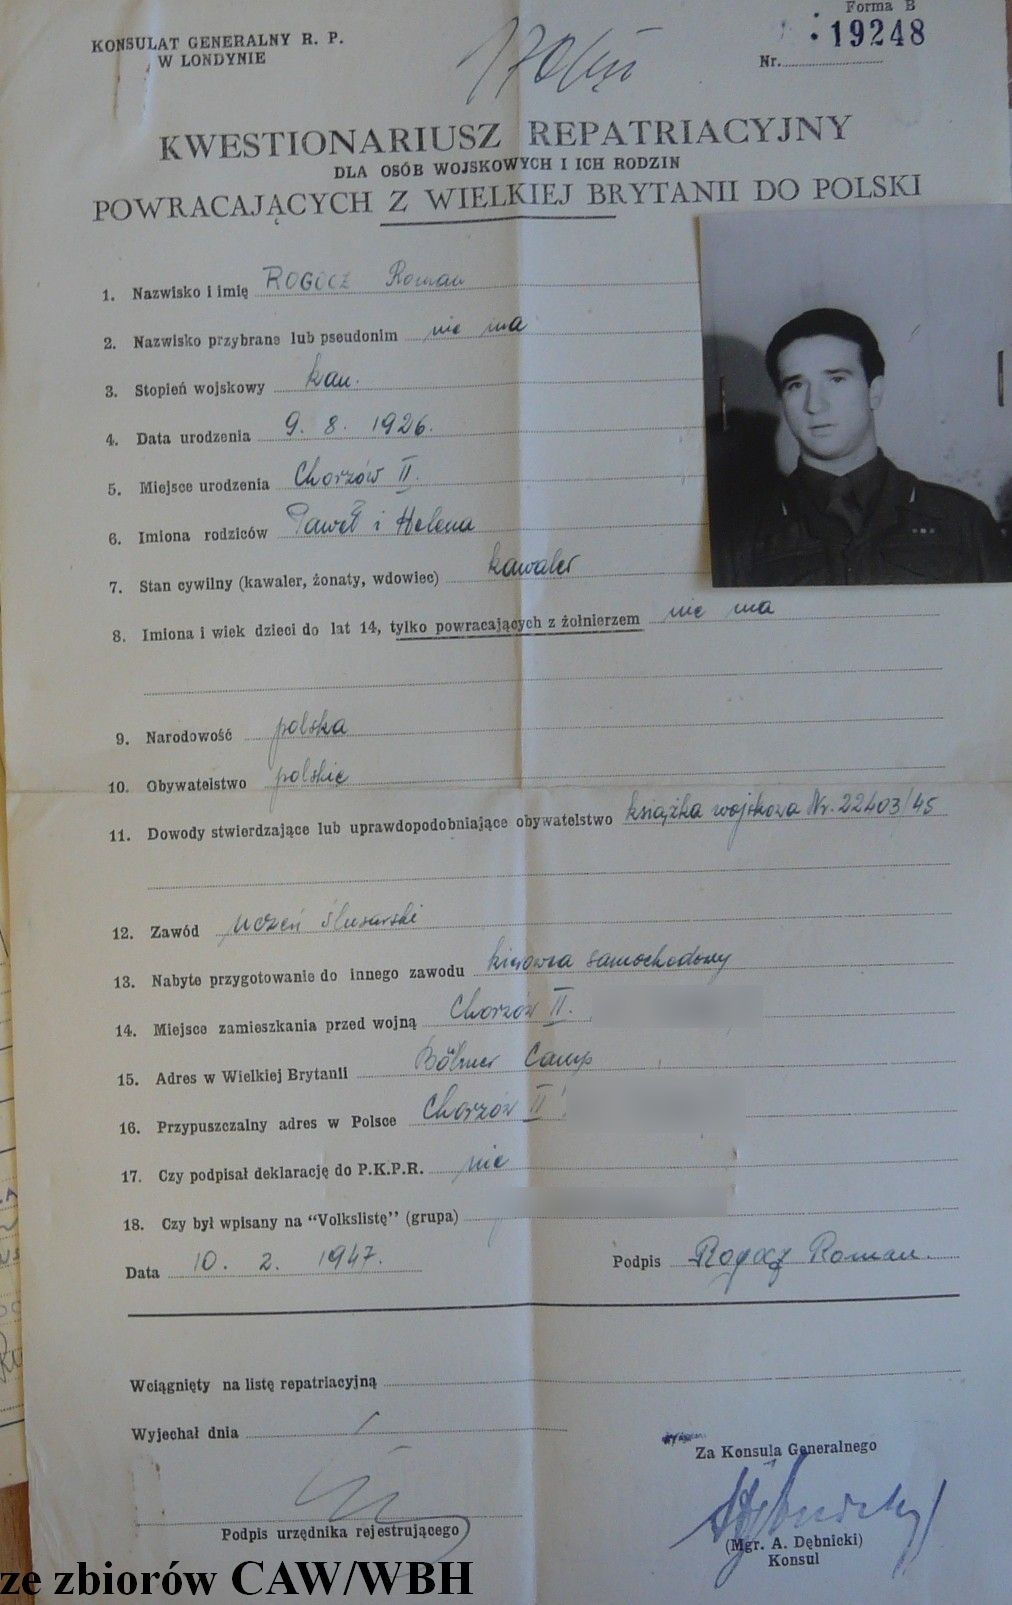 Forma B
KONSULAT GENERALNY R. P.
W LONDYNIE
Nr. 19248
KWESTIONARIUSZ REPATRIACYJNY
DLA OSÓB WOJSKOWYCH I ICH RODZIN
POWRACAJĄCYCH Z WIELKIEJ BRYTANII DO POLSKI
1. Nazwisko i imię ROGOCZ Roman
2. Nazwisko przybrane lub pseudonim nie ma
3. Stopień wojskowy kan.
4. Data urodzenia 9. 8. 1926.
5. Miejsce urodzenia Chorzów II.
6. Imiona rodziców Paweł i Helena
7. Stan cywilny (kawaler, żonaty, wdowiec) kawaler
8. Imiona i wiek dzieci do lat 14, tylko powracających z żołnierzem nie ma
9. Narodowość polska
10. Obywatelstwo polskie
11. Dowody stwierdzające lub uprawdopodobniające obywatelstwo książka wojskowa Nr. 22403/45
12. Zawód uczeń ślusarski
13. Nabyte przygotowanie do innego zawodu kierowca samochodowy
14. Miejsce zamieszkania przed wojną Chorzów II.
15. Adres w Wielkiej Brytanii Camp
16. Przypuszczalny adres w Polsce Chorzów II
17. Czy podpisał deklarację do P.K.P.R. nie
18. Czy był wpisany na "Volkslistę" (grupa)
Data 10. 2. 1947. Podpis Rogocz Roman.
Wciągnięty na listę repatriacyjną
Wyjechał dnia
Za Konsula Generalnego
Podpis urzędnika rejestrującego
(Mgr. A. Dębnicki)
Konsul
ze zbiorów CAW/WBH